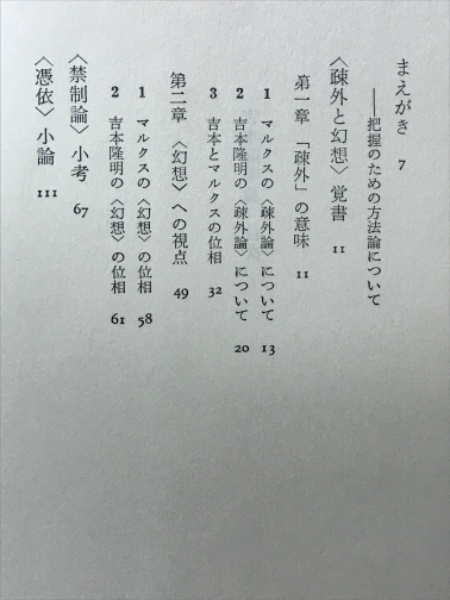 まえがき 7
――把握のための方法論について
〈疎外と幻想〉覚書 11
第一章 「疎外」の意味 11
1 マルクスの〈疎外論〉について 13
2 吉本隆明の〈疎外論〉について 20
3 吉本とマルクスの位相 32
第二章 〈幻想〉への視点 49
1 マルクスの〈幻想〉の位相 58
2 吉本隆明の〈幻想〉の位相 61
〈禁制論〉小考 67
〈憑依〉小論 111